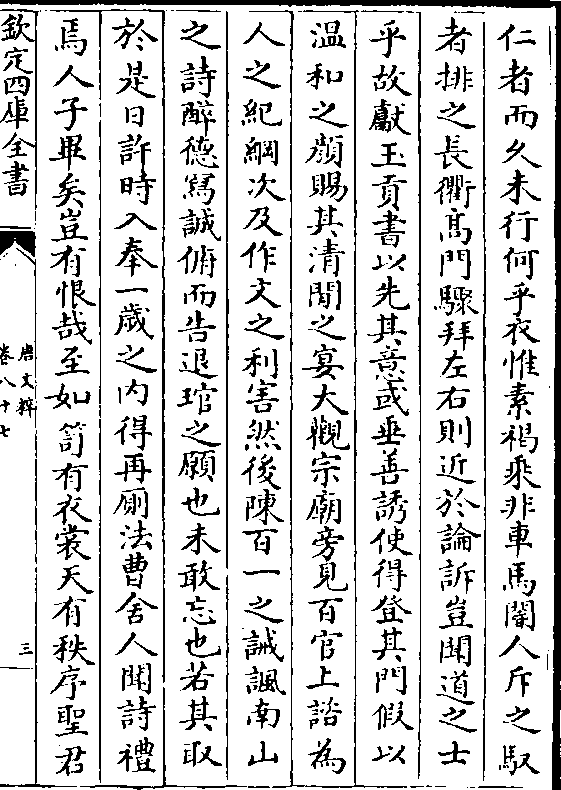 仁者而久未行何乎衣惟素褐乘非車馬閽人斥之馭
者排之長衢高門驟拜左右則近於論訴豈聞道之士
乎故獻玉貢書以先其意或垂善誘使得登其門假以
溫和之顔賜其清閒之宴大觀宗廟旁見百官上諮為
人之紀綱次及作文之利害然後陳百一之誡諷南山
之詩醉德寫誠俯而告退琯之願也未敢忘也若其取
於是日許時入奉一歲之内得再厠法曹舍人聞詩禮
焉人子畢矣豈有恨哉至如笥有衣裳天有秩序聖君
欽定四庫全書
唐文粹
卷八十七
三